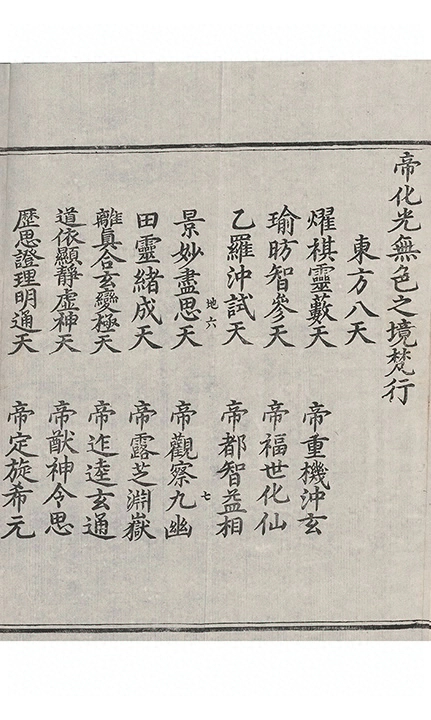 帝化光無色之境梵行
東方八天
燿棋靈藪天 帝重機沖玄
瑜昉智參天 帝福世化仙
乙羅沖試天 帝都智益相
地六 七
景妙盡思天 帝觀察九幽
田靈緒成天 帝露芝淵嶽
離真合玄變極天 帝迮逵玄通
道依顯靜虛神天 帝猷神令思
歷思證理明通天 帝定旋希元